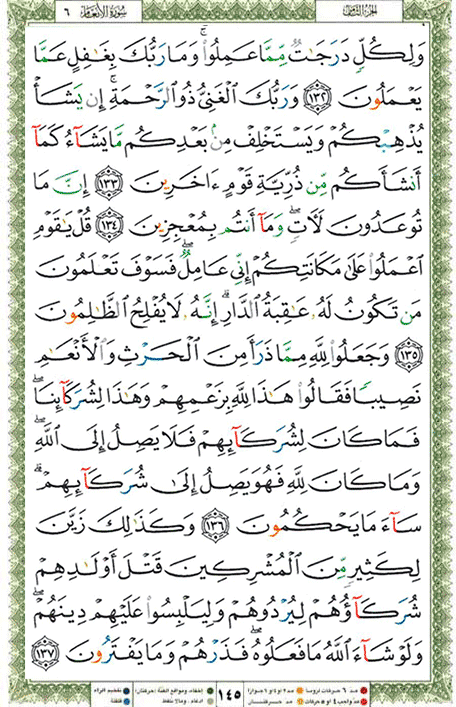 سورة الأنعام ٦
الجزء الثامن
وَلِكُلٍّ دَرَجَٰتٌ مِّمَّا عَمِلُوا۟ ۚ وَمَا رَبُّكَ بِغَٰفِلٍ عَمَّا
يَعْمَلُونَ ﴿١٣٢﴾ وَرَبُّكَ ٱلْغَنِىُّ ذُو ٱلرَّحْمَةِ ۚ إِن يَشَأْ
يُذْهِبْكُمْ وَيَسْتَخْلِفْ مِنۢ بَعْدِكُم مَّا يَشَآءُ كَمَآ
أَنشَأَكُم مِّن ذُرِّيَّةِ قَوْمٍ ءَاخَرِينَ ﴿١٣٣﴾ إِنَّ مَا
تُوعَدُونَ لَءَاتٍ ۖ وَمَآ أَنتُم بِمُعْجِزِينَ ﴿١٣٤﴾ قُلْ يَٰقَوْمِ
ٱعْمَلُوا۟ عَلَىٰ مَكَانَتِكُمْ إِنِّى عَامِلٌ ۖ فَسَوْفَ تَعْلَمُونَ
مَن تَكُونُ لَهُۥ عَٰقِبَةُ ٱلدَّارِ ۗ إِنَّهُۥ لَا يُفْلِحُ ٱلظَّٰلِمُونَ
﴿١٣٥﴾ وَجَعَلُوا۟ لِلَّهِ مِمَّا ذَرَأَ مِنَ ٱلْحَرْثِ وَٱلْأَنْعَٰمِ
نَصِيبًا فَقَالُوا۟ هَٰذَا لِلَّهِ بِزَعْمِهِمْ وَهَٰذَا لِشُرَكَآئِنَا ۖ
فَمَا كَانَ لِشُرَكَآئِهِمْ فَلَا يَصِلُ إِلَى ٱللَّهِ ۖ
وَمَا كَانَ لِلَّهِ فَهُوَ يَصِلُ إِلَىٰ شُرَكَآئِهِمْ ۗ
سَآءَ مَا يَحْكُمُونَ ﴿١٣٦﴾ وَكَذَٰلِكَ زَيَّنَ
لِكَثِيرٍ مِّنَ ٱلْمُشْرِكِينَ قَتْلَ أَوْلَٰدِهِمْ
شُرَكَآؤُهُمْ لِيُرْدُوهُمْ وَلِيَلْبِسُوا۟ عَلَيْهِمْ دِينَهُمْ ۖ
وَلَوْ شَآءَ ٱللَّهُ مَا فَعَلُوهُ ۖ فَذَرْهُمْ وَمَا يَفْتَرُونَ ﴿١٣٧﴾
١٤٥
مد ٦ حركات لزوماً مد ٢ أو ٤ أو ٦ جوازاً
مد واجب ٤ أو ٥ حركات مد حركتان
إخفاء، ومواقع الغنة (حركتان)
إدغام، وما لا يلفظ
تفخيم الراء
قلقلة